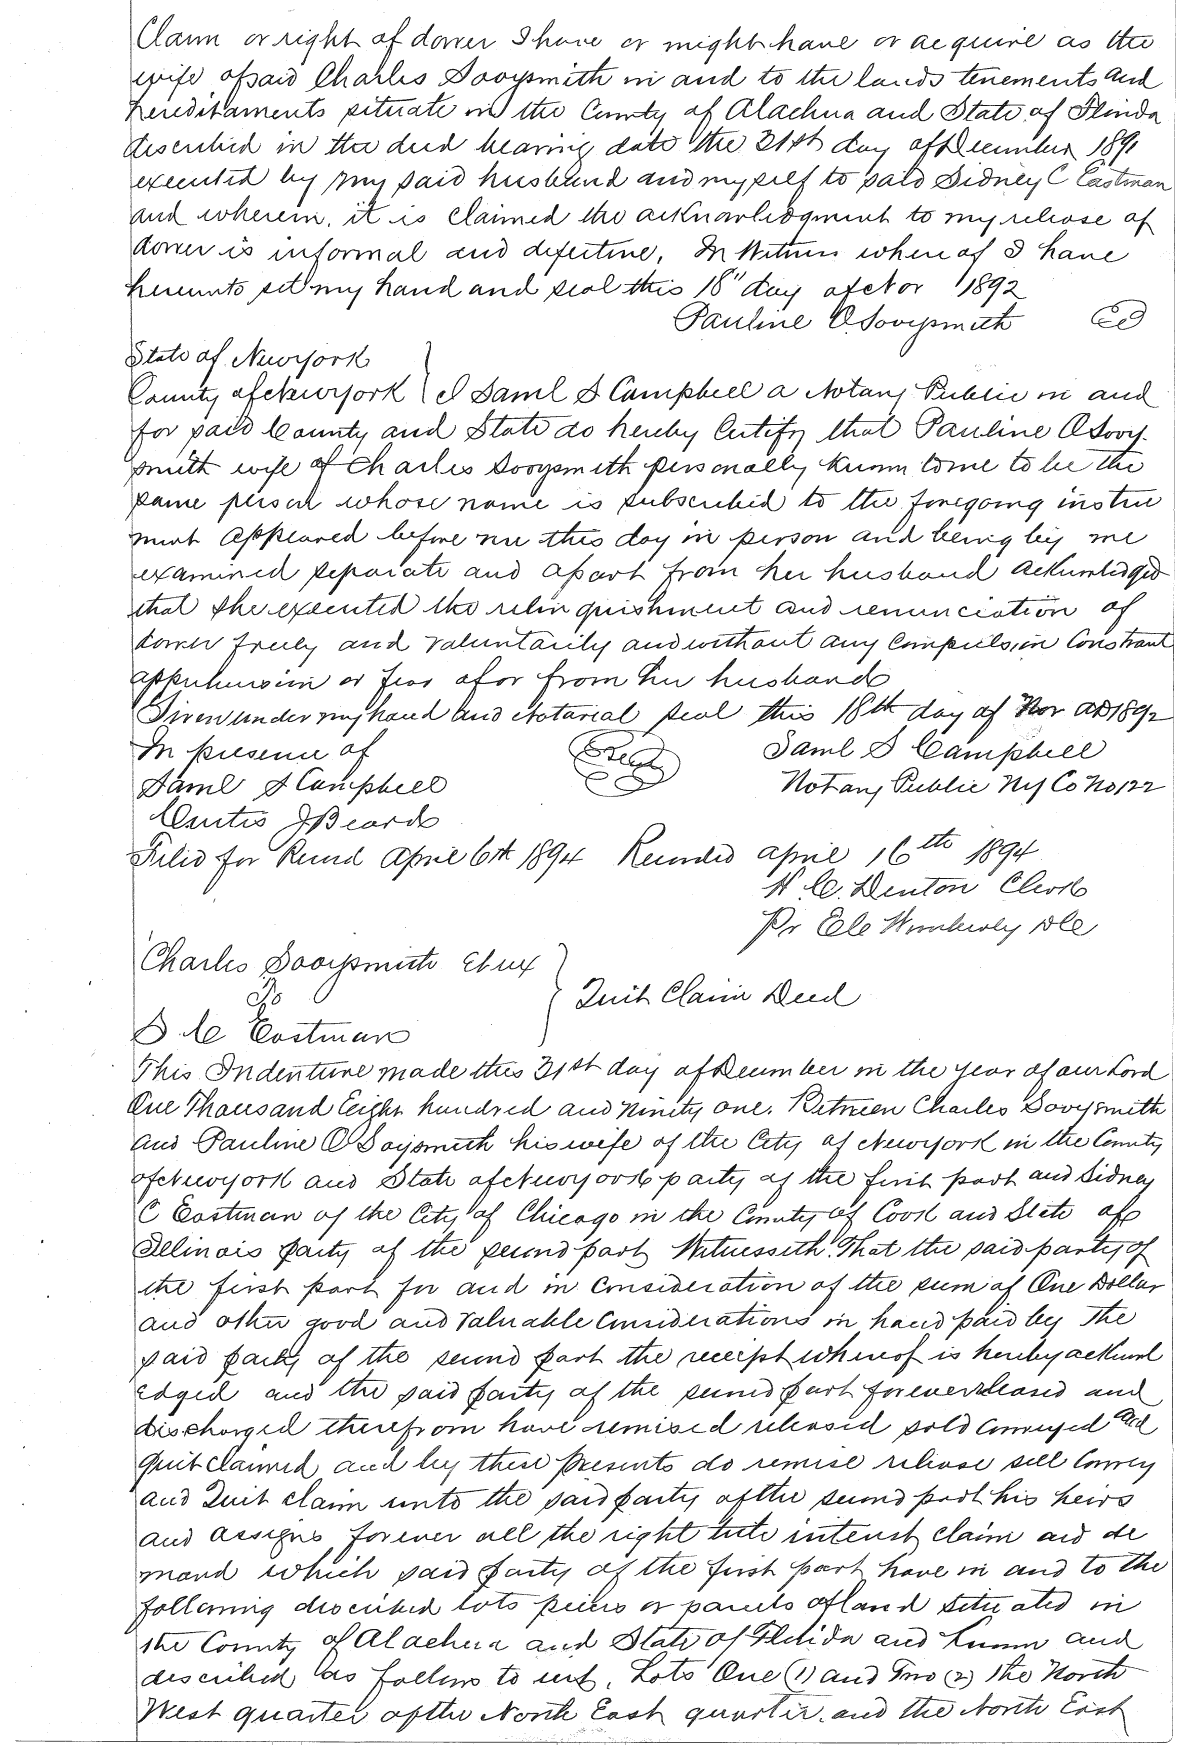 Claim or right of dower I have or might have or acquire as the
wife of said Charles Sooysmith in and to the lands tenements and
hereditaments situate in the County of Alachua and State of Florida
described in the deed bearing date the 31st day of December 1891
executed by my said husband and myself to said Sidney C Eastman
and wherein, it is claimed the acknowledgment to my release of
dower is informal and defective. In Witness where of I have
hereunto set my hand and seal this 18" day of Nov 1892
Pauline O Sooysmith
State of Newyork
County of Newyork } I Saml S Campbell a Notary Public in and
for said County and State do hereby Certify that Pauline O Sooy-
smith wife of Charles Sooysmith personally known to me to be the
same person whose name is subscribed to the foregoing instru
ment appeared before me this day in person and being by me
examined separate and apart from her husband acknowledged
that she executed the relinquishment and renunciation of
dower freely and voluntarily and without any Compulsion Constraint
apprehension or fear of or from her husband
Given under my hand and Notarial seal this 18th day of Nov AD 1892
In presence of (Seal) Saml S Campbell
Saml S Campbell Notary Public NY Co No 122
Curtis J Beard
Filed for Record April 6th 1894 Recorded April 16th 1894
H. C. Denton Clerk
Pr Wimberly DC
Charles Sooysmith Et ux
To } Quit Claim Deed
S C Eastman
This Indenture made this 31st day of December in the year of our Lord
One Thousand Eight hundred and ninety one. Between Charles Sooysmith
and Pauline O Soysmith his wife of the City of Newyork in the County
of Newyork and State of Newyork party of the first part and Sidney
C Eastman of the City of Chicago in the County of Cook and State of
Illinois party of the second part Witnesseth. That the said party of
the first part for and in consideration of the sum of One Dollar
and other good and valuable Considerations in hand paid by the
said party of the second part the receipt whereof is hereby acknowl
edged and the said party of the second part forever released and
discharged therefrom have remised released sold Conveyed and
quit claimed and by these presents do remise release sell Convey
and Quit claim unto the said party of the second part his heirs
and assigns forever all the right title interest claim and de
mand which said party of the first part have in and to the
following described lots pieces or parcels of land situated in
the County of Alachua and State of Florida and known and
described as follows to wit. Lots One (1) and Two (2) the North
West quarter of the North East quarter. and the North East